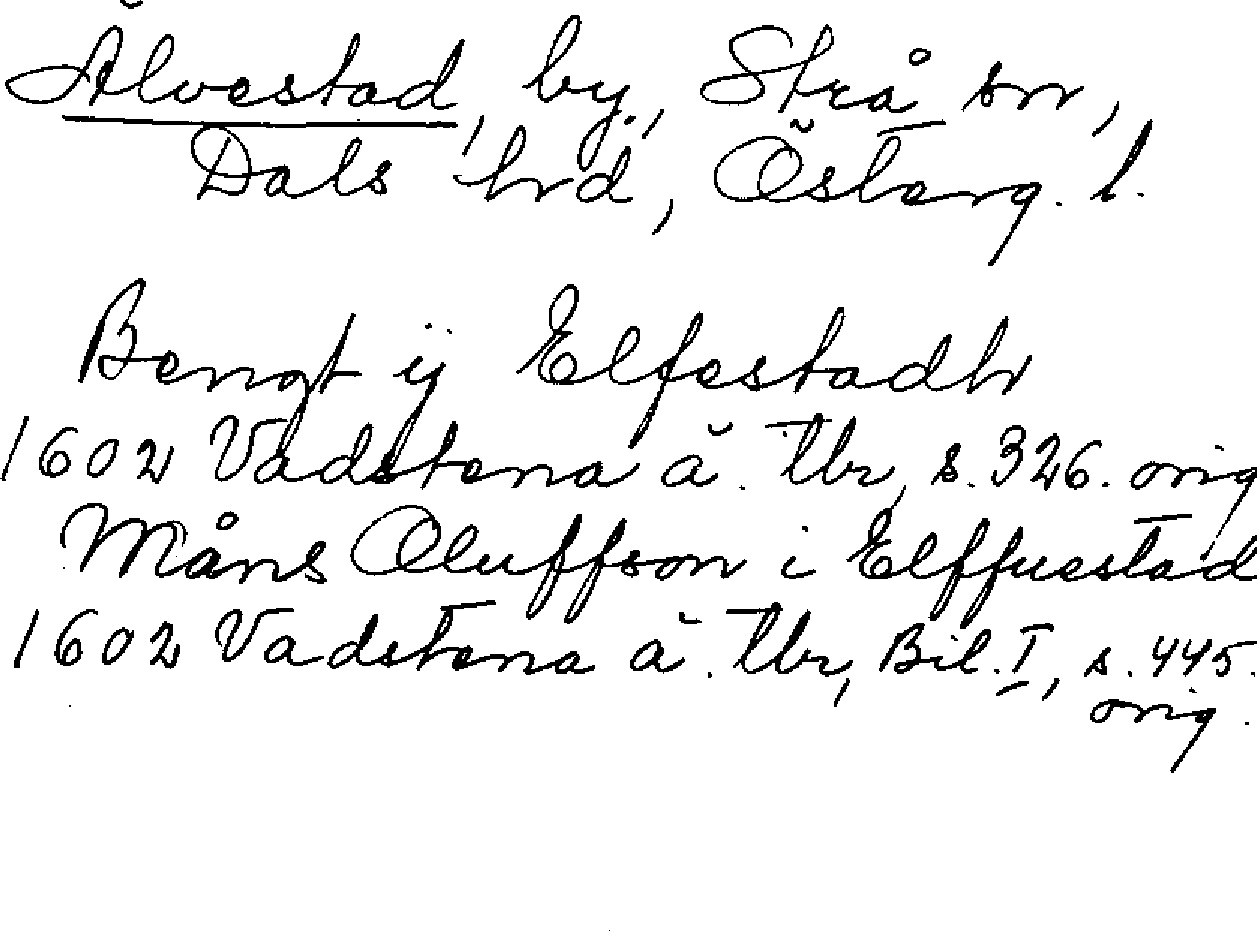 Älvestad, by, Strå sn,
Dals hd, Österg. l.
Bengt ij Elfestadh
1602 Vadstena ä. tbr, s. 326. orig
Måns Oluffson i Elffuestad
1602 Vadstena ä. tbr, Bil. I, s. 445.
orig.